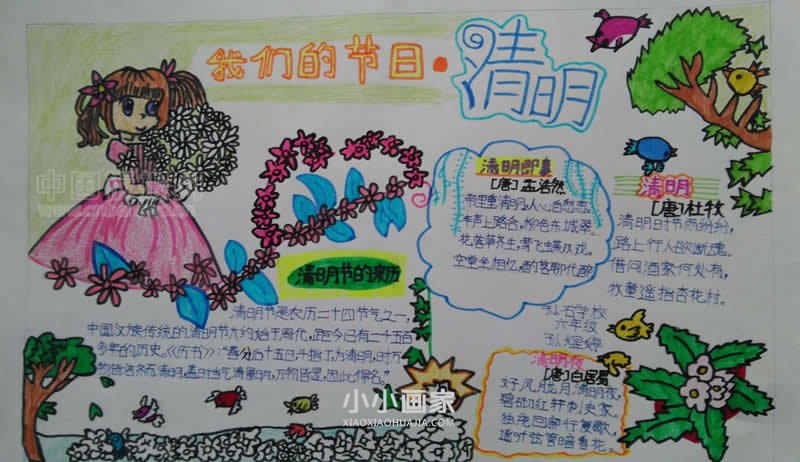 我们的节日·清明
清明即事
[唐]孟浩然
帝里重清明,人心自愁思。
车声上路合,柳色东城翠。
花落草齐生,莺飞蝶双戏。
空堂坐相忆,酌茗聊代醉
清明
[唐]杜牧
清明时节雨纷纷,
路上行人欲断魂。
借问酒家何处有,
牧童遥指杏花村。
清明节的来历
清明节是农历二十四节气之一,
中国汉族传统的清明节大约始于周代,距今已有二千五百
多年的历史。《历书》:"春分后十五日,斗指丁,为清明,时万
物皆洁齐而清明,盖时当气清景明,万物皆显,因此得名。"
学校
六年级
清明夜
[唐]白居易
好风胧月清明夜,
碧砌红轩刺史家。
独绕回廊行复歇,
遥听弦管暗看花。
小小画家
XIAOXIAOHUAJIA.COM